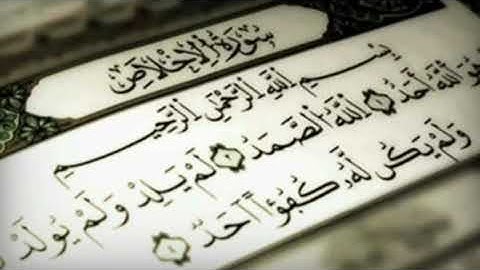 سُورَةُ الْإِخْلَاصِ
بِسْمِ اللَّهِ الرَّحْمَٰنِ الرَّحِيمِ
هُوَ اللَّهُ أَحَدٌ ۝١ اللَّهُ الصَّمَدُ ۝٢ لَمْ يَلِدْ وَلَمْ يُولَدْ
وَلَمْ يَكُن لَّهُ كُفُوًا أَحَدٌ ۝٤